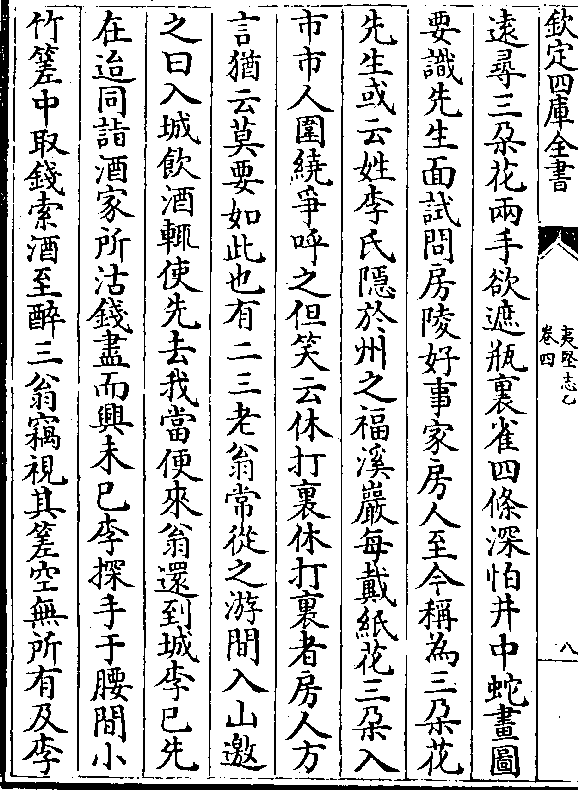 欽定四庫全書
夷堅志乙
卷四
八
遠尋三朶花兩手欲遮瓶裏雀四條深怕井中蛇畫圖
要識先生面試問房陵好事家房人至今稱為三朶花
先生或云姓李氏隱於州之福溪巖每戴紙花三朶入
市市人圍繞爭呼之但笑云休打裏休打裏者房人方
言猶云莫要如此也有二三老翁常從之游間入山邀
之曰入城飲酒輒使先去我當便來翁還到城李已先
在迨同詣酒家所沽錢盡而興未已李探手于腰間小
竹簍中取錢索酒至醉三翁竊視其簍空無所有及李